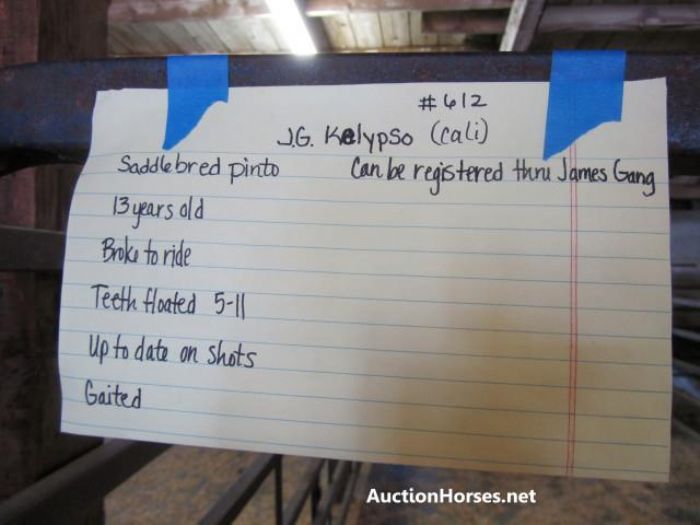 #612
J.G. Kalypso (Cali)
Saddlebred pinto Can be registered thru James Gang
13 years old
Broke to ride
Teeth floated 5-11
Up to date on shots
Gaited
AuctionHorses.net